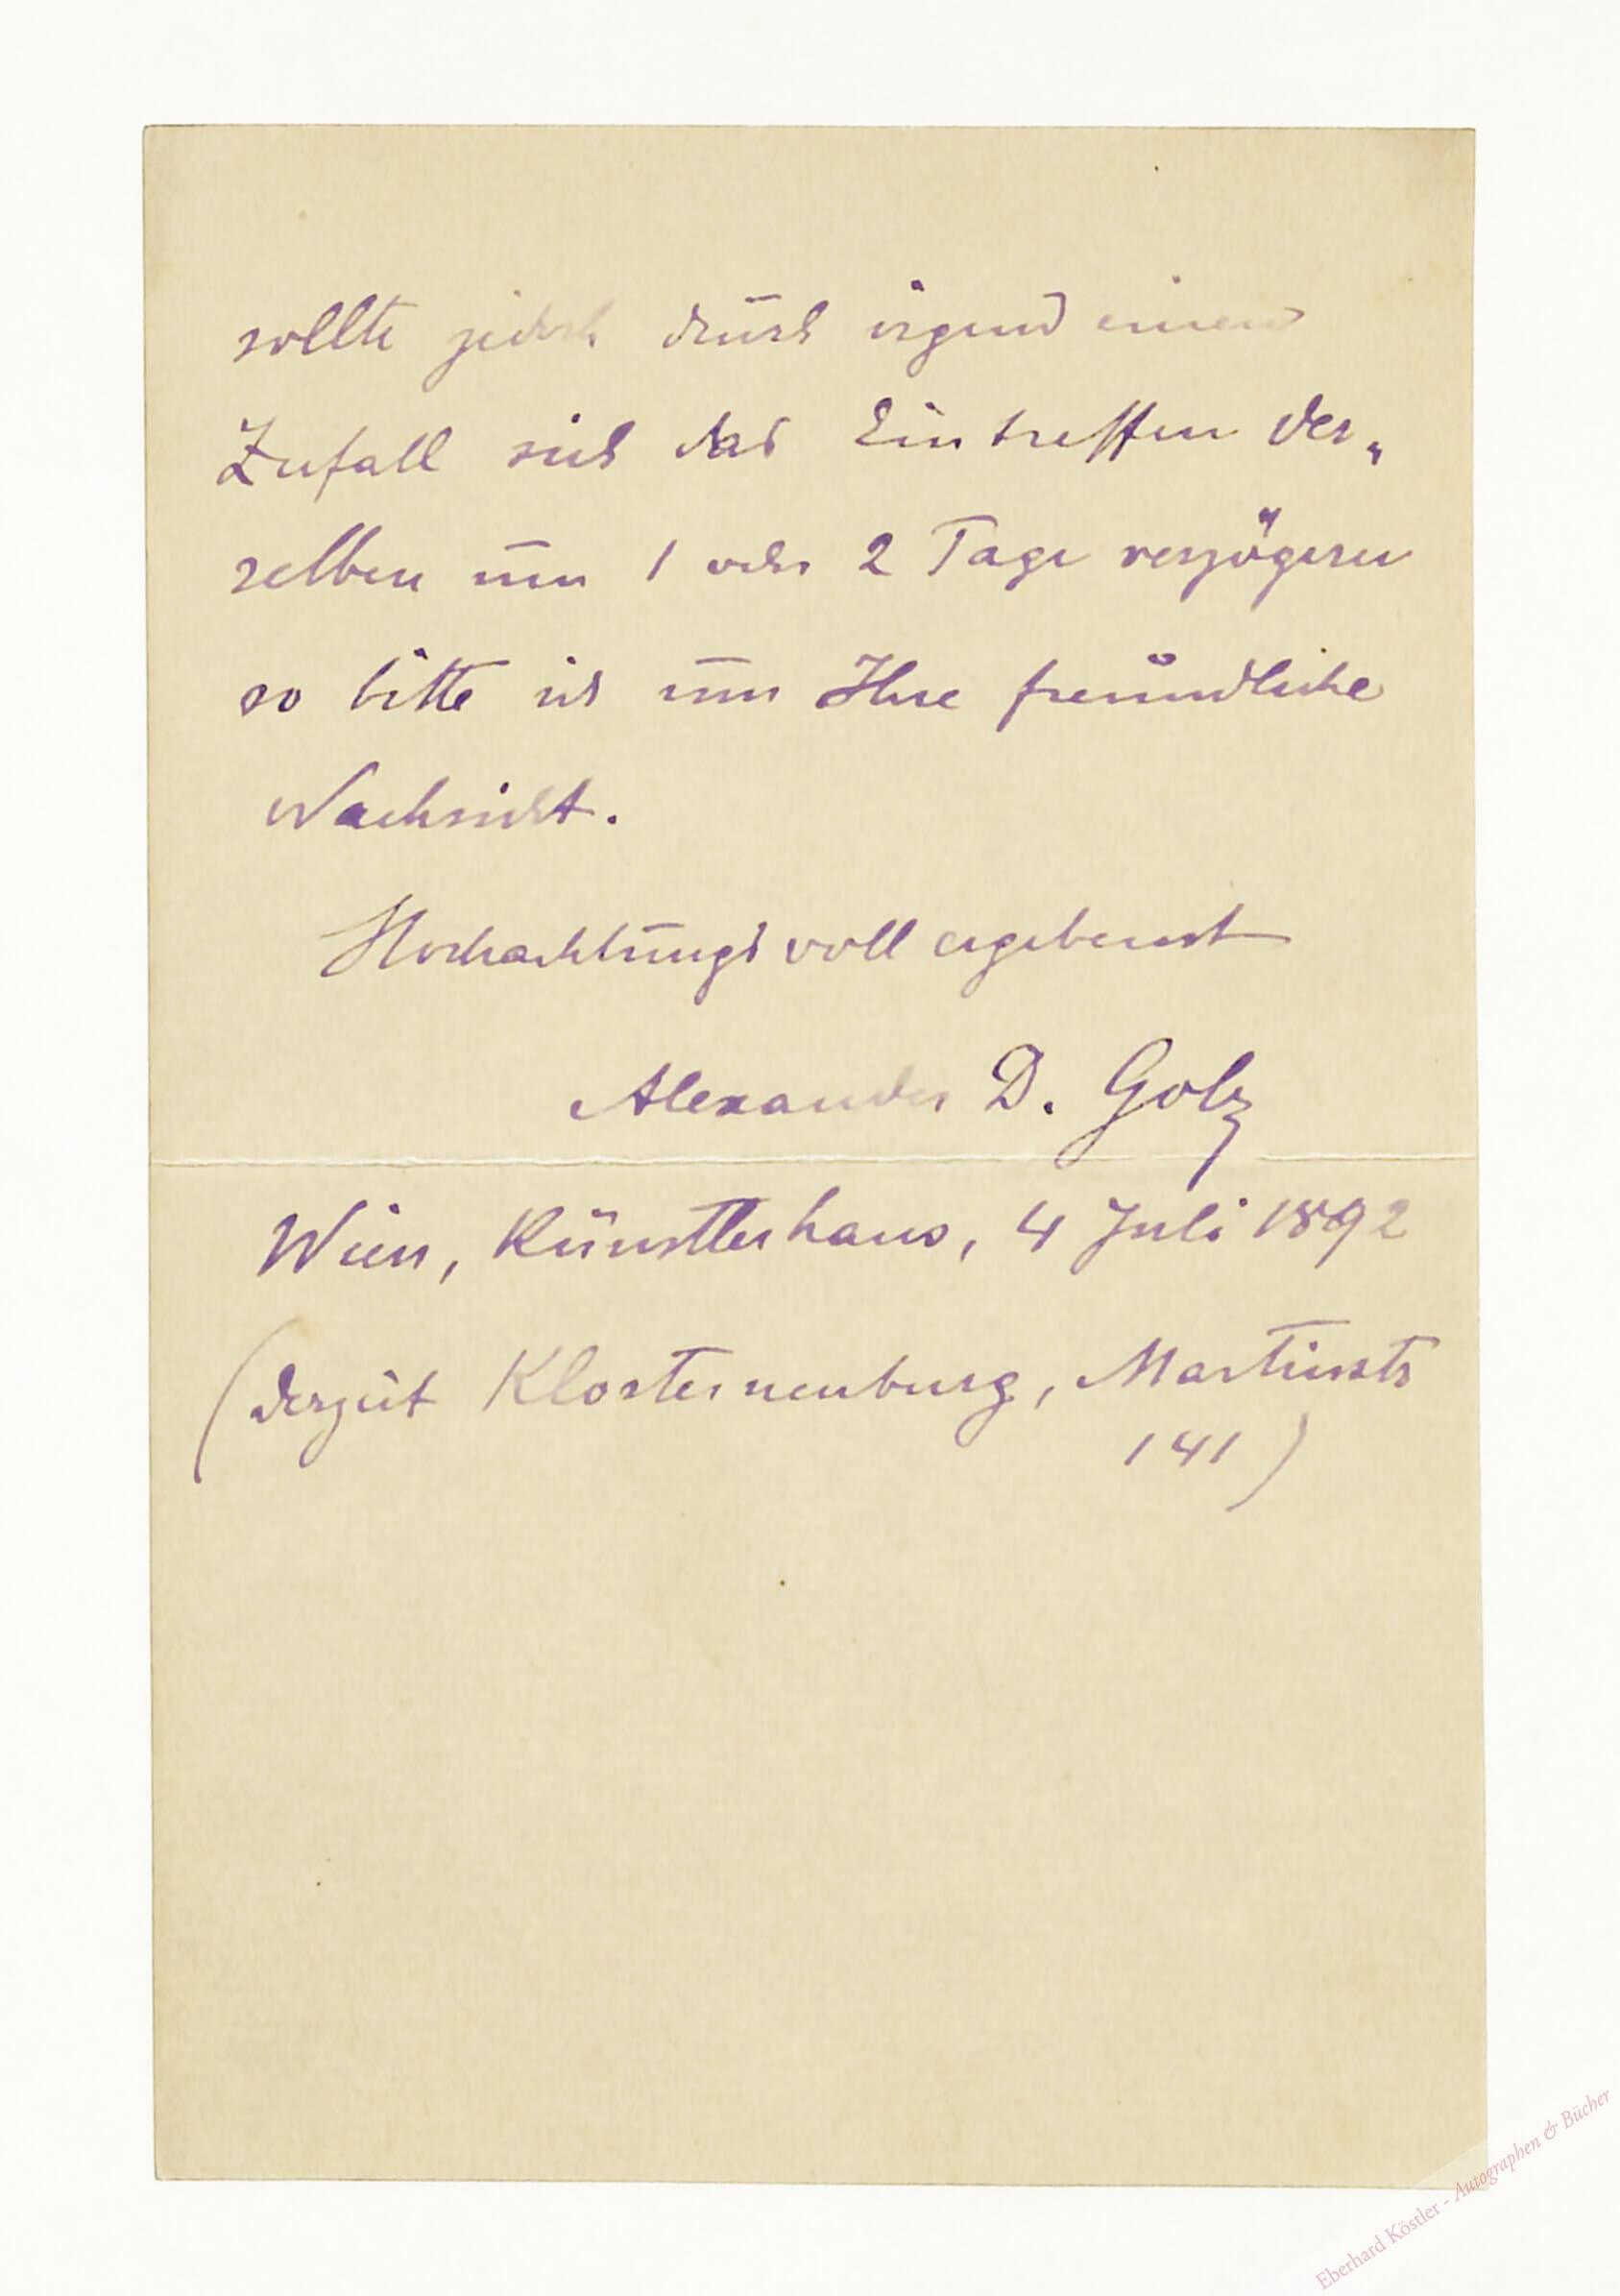 sollte jedoch durch irgend einen
Zufall sich das Eintreffen der„
selben um 1 oder 2 Tage verzögern
so bitte ich um Ihre freundliche
Nachsicht.
Hochachtungsvoll ergebenst
Alexander D. Golz
Wien, Künstlerhaus, 4 Juli 1892
(derzeit Klosterneuburg, Martinstr
141)
Eberhard Köstler - Autographen & Bücher